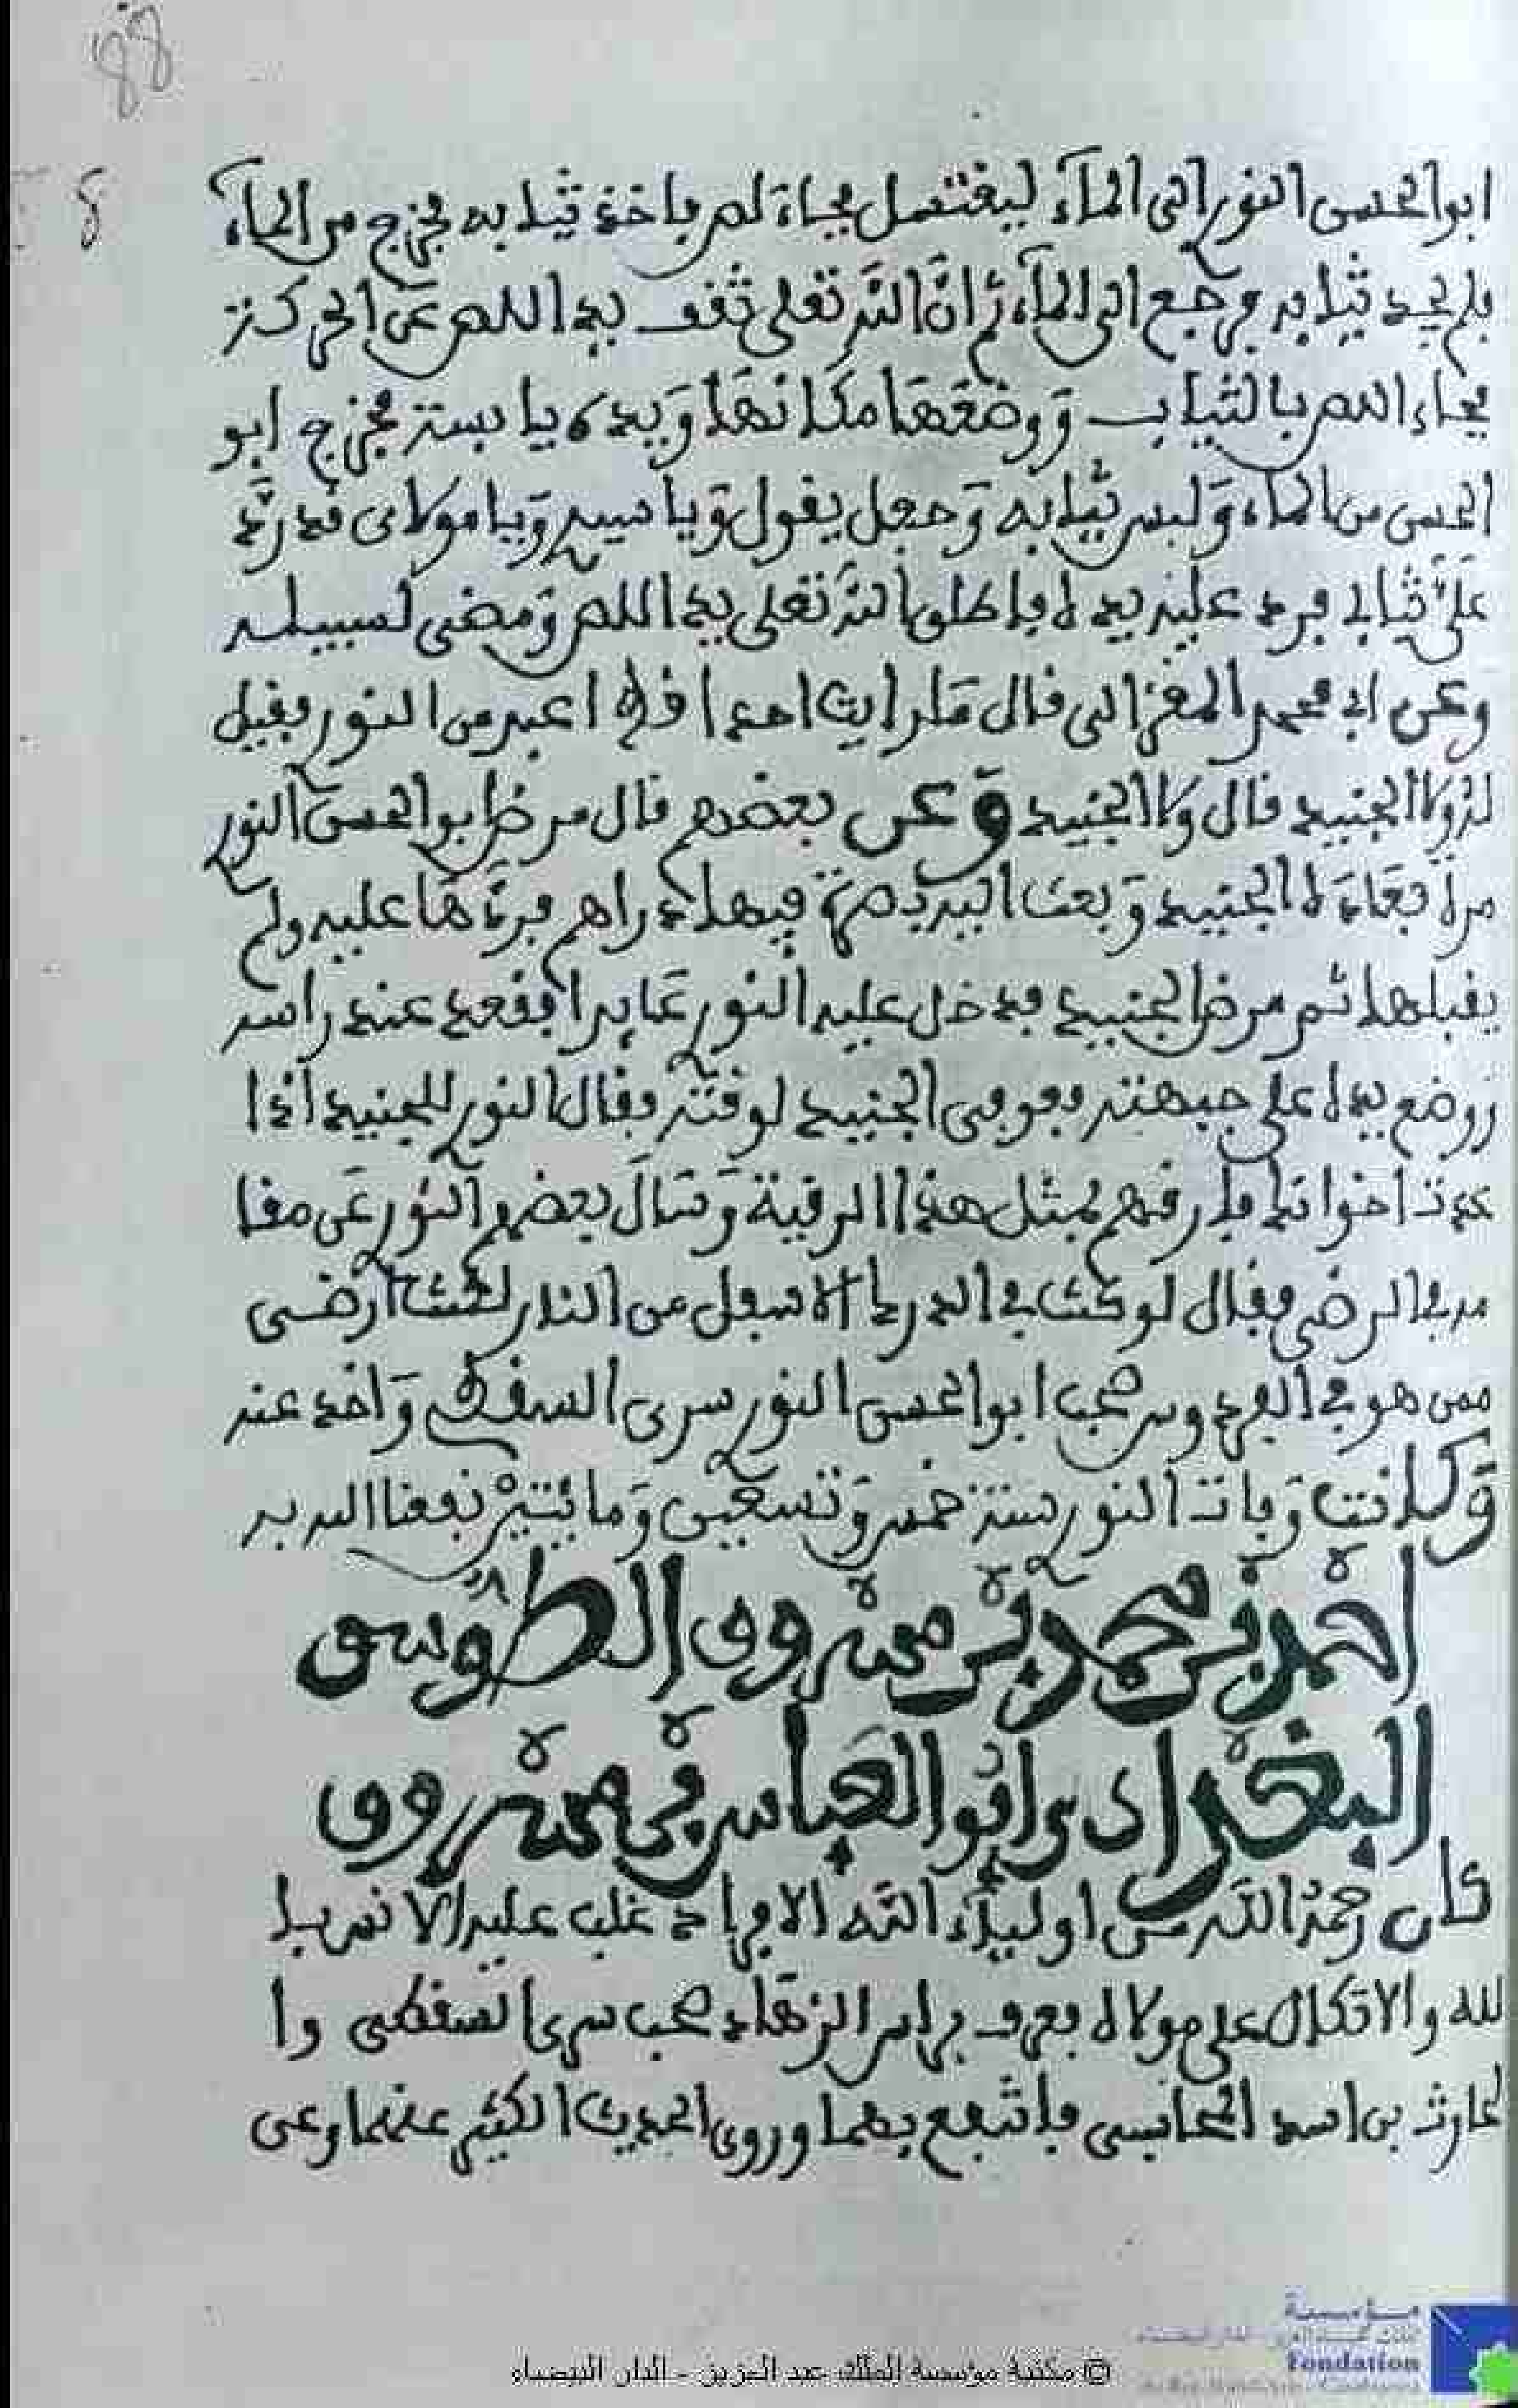 ابو الحسن النور الى المآء ليغتسل فجاءه لص فاخذ ثيابه فخرج من المآء
فلم يجد ثيابه فرجع الى المآء ثم ان الله تعلى ثقف يد اللص عن الحركة
فجاء اللص بالثياب ووضعها مكانها ويده يابسة فخرج ابو
الحسن من المآء ولبس ثيابه وجعل يقول ويا سيدي ويا مولاى قد رد
علي ثيابي فرد عليه يده فاطلق الله تعلى يد اللص ومضى لسبيله
وعن ابي محمد المغزالى قال ما رايت احدا قط اعبد من النور فقيل
له ولا الجنيد قال ولا الجنيد وعن بعضهم قال مرض ابو الحسن النور
مرة فعاده الجنيد وبعث اليه بصرة فيها دراهم فردها عليه ولم
يقبلها ثم مرض الجنيد فدخل عليه النور عايدا فقعد عند راسه
ووضع يده على جبهته فعوفى الجنيد لوقته فقال النور للجنيد اذا
عدت اخوانك فارقهم بمثل هذا الرقية وسال بعضهم النور عن مقا
مه في الرضى فقال لو كنت في الدرك الاسفل من النار لكنت ارضى
ممن هو في الفردوس صحب ابو الحسن النور سرى السقطي واخذ عنه
وكانت وفات النور سنة خمس وتسعين ومائتين نفعنا الله به
احمد بن محمد بن مسروق الطوسى
البغدادى ابو العباس بن مسروق
كان رحمه الله من اوليآء الله الافراد غلب عليه الانفراد
لله والاتكال على مولاه فعرف براس الزهاد صحب سرى السقطى وا
لحارث بن اسد المحاسبى فانتفع بهما وروى الحديث الكثير عنهما وعن
© مكتبة مؤسسة الملك عبد العزيز - الدار البيضاء
مؤسسة
Fondation